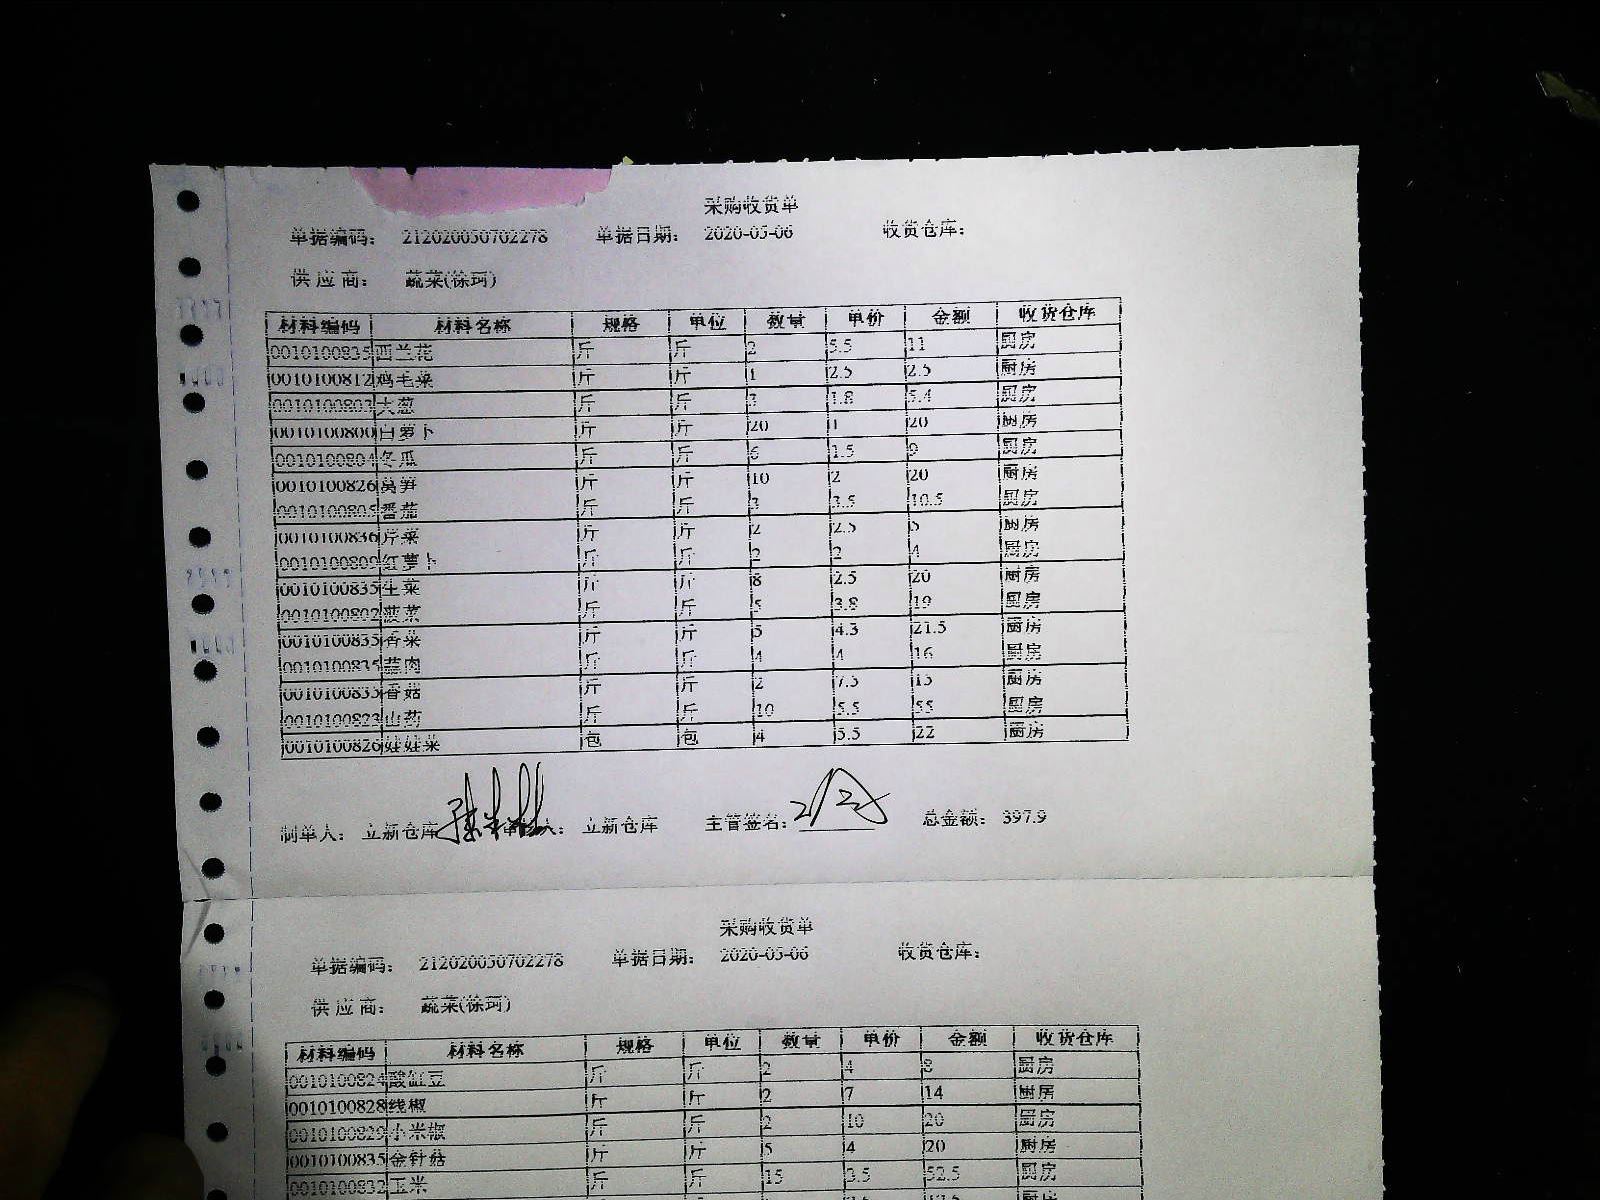 采购收货单
单据编码： 212020050702278 单据日期： 2020-05-06 收货仓库：
供 应 商： 蔬菜(徐珂)
材料编码 材料名称 规格 单位 数量 单价 金额 收货仓库
0010100835 西兰花 斤 斤 2 5.5 11 厨房
0010100812 鸡毛菜 斤 斤 1 2.5 2.5 厨房
0010100803 大葱 斤 斤 3 1.8 5.4 厨房
0010100800 白萝卜 斤 斤 20 1 20 厨房
0010100804 冬瓜 斤 斤 6 1.5 9 厨房
0010100826 莴笋 斤 斤 10 2 20 厨房
0010100805 番茄 斤 斤 3 3.5 10.5 厨房
0010100836 芹菜 斤 斤 2 2.5 5 厨房
0010100809 红萝卜 斤 斤 2 2 4 厨房
0010100835 生菜 斤 斤 8 2.5 20 厨房
0010100802 菠菜 斤 斤 5 3.8 19 厨房
0010100835 香菜 斤 斤 5 4.3 21.5 厨房
0010100835 蒜肉 斤 斤 4 4 16 厨房
0010100835 香菇 斤 斤 2 7.5 15 厨房
0010100823 山药 斤 斤 10 5.5 55 厨房
0010100826 娃娃菜 包 包 4 5.5 22 厨房
制单人： 立新仓库 人： 立新仓库 主管签名： 总金额： 397.9
采购收货单
单据编码： 212020050702278 单据日期： 2020-05-06 收货仓库：
供 应 商： 蔬菜(徐珂)
材料编码 材料名称 规格 单位 数量 单价 金额 收货仓库
0010100824 酸缸豆 斤 斤 2 4 8 厨房
0010100828 线椒 斤 斤 2 7 14 厨房
0010100829 小米椒 斤 斤 2 10 20 厨房
0010100835 金针菇 斤 斤 5 4 20 厨房
0010100832 玉米 斤 斤 15 3.5 52.5 厨房